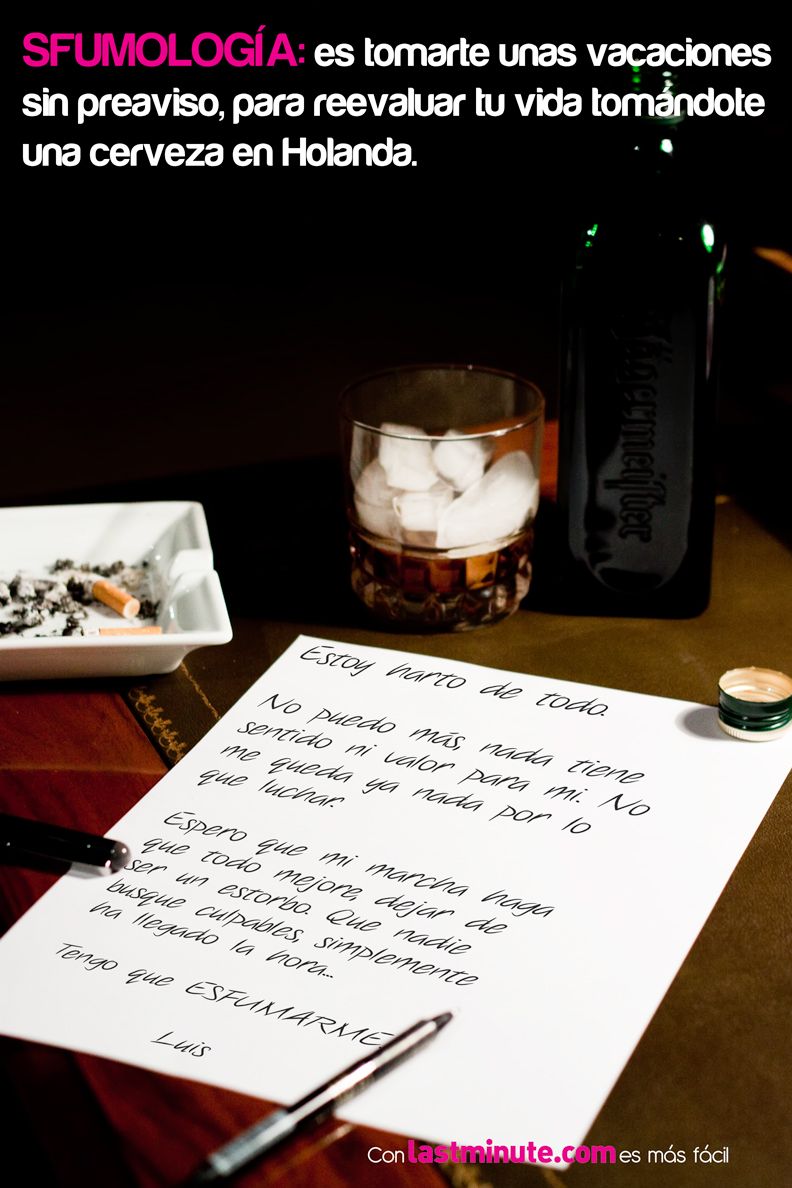 SFUMOLOGÍA: es tomarte unas vacaciones
sin preaviso, para reevaluar tu vida tomándote
una cerveza en Holanda.
Jägermeister
Estoy harto de todo.
No puedo más, nada tiene
sentido ni valor para mi. No
me queda ya nada por lo
que luchar.
Espero que mi marcha haga
que todo mejore, dejar de
ser un estorbo. Que nadie
busque culpables, simplemente
ha llegado la hora...
Tengo que ESFUMARME.
Luis
Con lastminute.com es más fácil